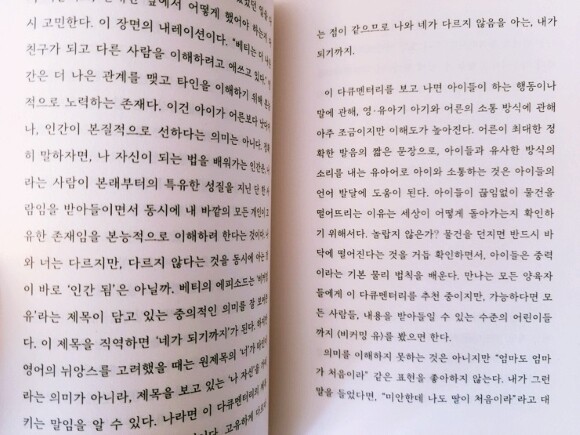 앞에서 어떻게 했어야 하는
시 고민한다. 이 장면의 내레이션이다. “베티는
친구가 되고 다른 사람을 이해하려고 애쓰고 있다.
간은 더 나은 관계를 맺고 타인을 이해하기 위해
적으로 노력하는 존재다. 이건 아이가 어른보다
나, 인간이 본질적으로 선하다는 의미는 아니다.
히 말하자면, 나 자신이 되는 법을 배워가는 인간은,
라는 사람이 본래부터의 특유한 성질을 지닌 단 한
람임을 받아들이면서 동시에 내 바깥의 모든 개인이
유한 존재임을 본능적으로 이해하려 한다는 것이다.
와 너는 다르지만, 다르지 않다는 것을 동시에 아는
이 바로 ‘인간 됨’은 아닐까. 베티의 에피소드는
유’라는 제목이 담고 있는 중의적인 의미를 잘
다. 이 제목을 직역하면 ‘네가 되기까지’가 된다.
영어의 뉘앙스를 고려했을 때는 원제목의 ‘너’가
라는 의미가 아니라, 제목을 보고 있는 ‘나 자신’을
키는 말임을 알 수 있다. 나라면 이 다큐멘터리의
는 점이 같으므로 나와 네가 다르지 않음을 아는, 내가
되기까지.
이 다큐멘터리를 보고 나면 아이들이 하는 행동이나
말에 관해, 영·유아기 아기와 어른의 소통 방식에 관해
아주 조금이지만 이해도가 높아진다. 어른이 최대한 정
확한 발음의 짧은 문장으로, 아이들과 유사한 방식의
소리를 내는 유아어로 아이와 소통하는 것은 아이들의
언어 발달에 도움이 된다. 아이들이 끊임없이 물건을
떨어뜨리는 이유는 세상이 어떻게 돌아가는지 확인하
기 위해서다. 놀랍지 않은가? 물건을 던지면 반드시 바
닥에 떨어진다는 것을 거듭 확인하면서, 아이들은 중력
이라는 기본 물리 법칙을 배운다. 만나는 모든 양육자
들에게 이 다큐멘터리를 추천 중이지만, 가능하다면 모
든 사람들, 내용을 받아들일 수 있는 수준의 어린이들
까지 〈비커밍 유〉를 봤으면 한다.
의미를 이해하지 못하는 것은 아니지만 “엄마도 엄마
가 처음이라” 같은 표현을 좋아하지 않는다. 내가 그런
말을 들었다면, “미안한데 나도 딸이 처음이라”라고 대